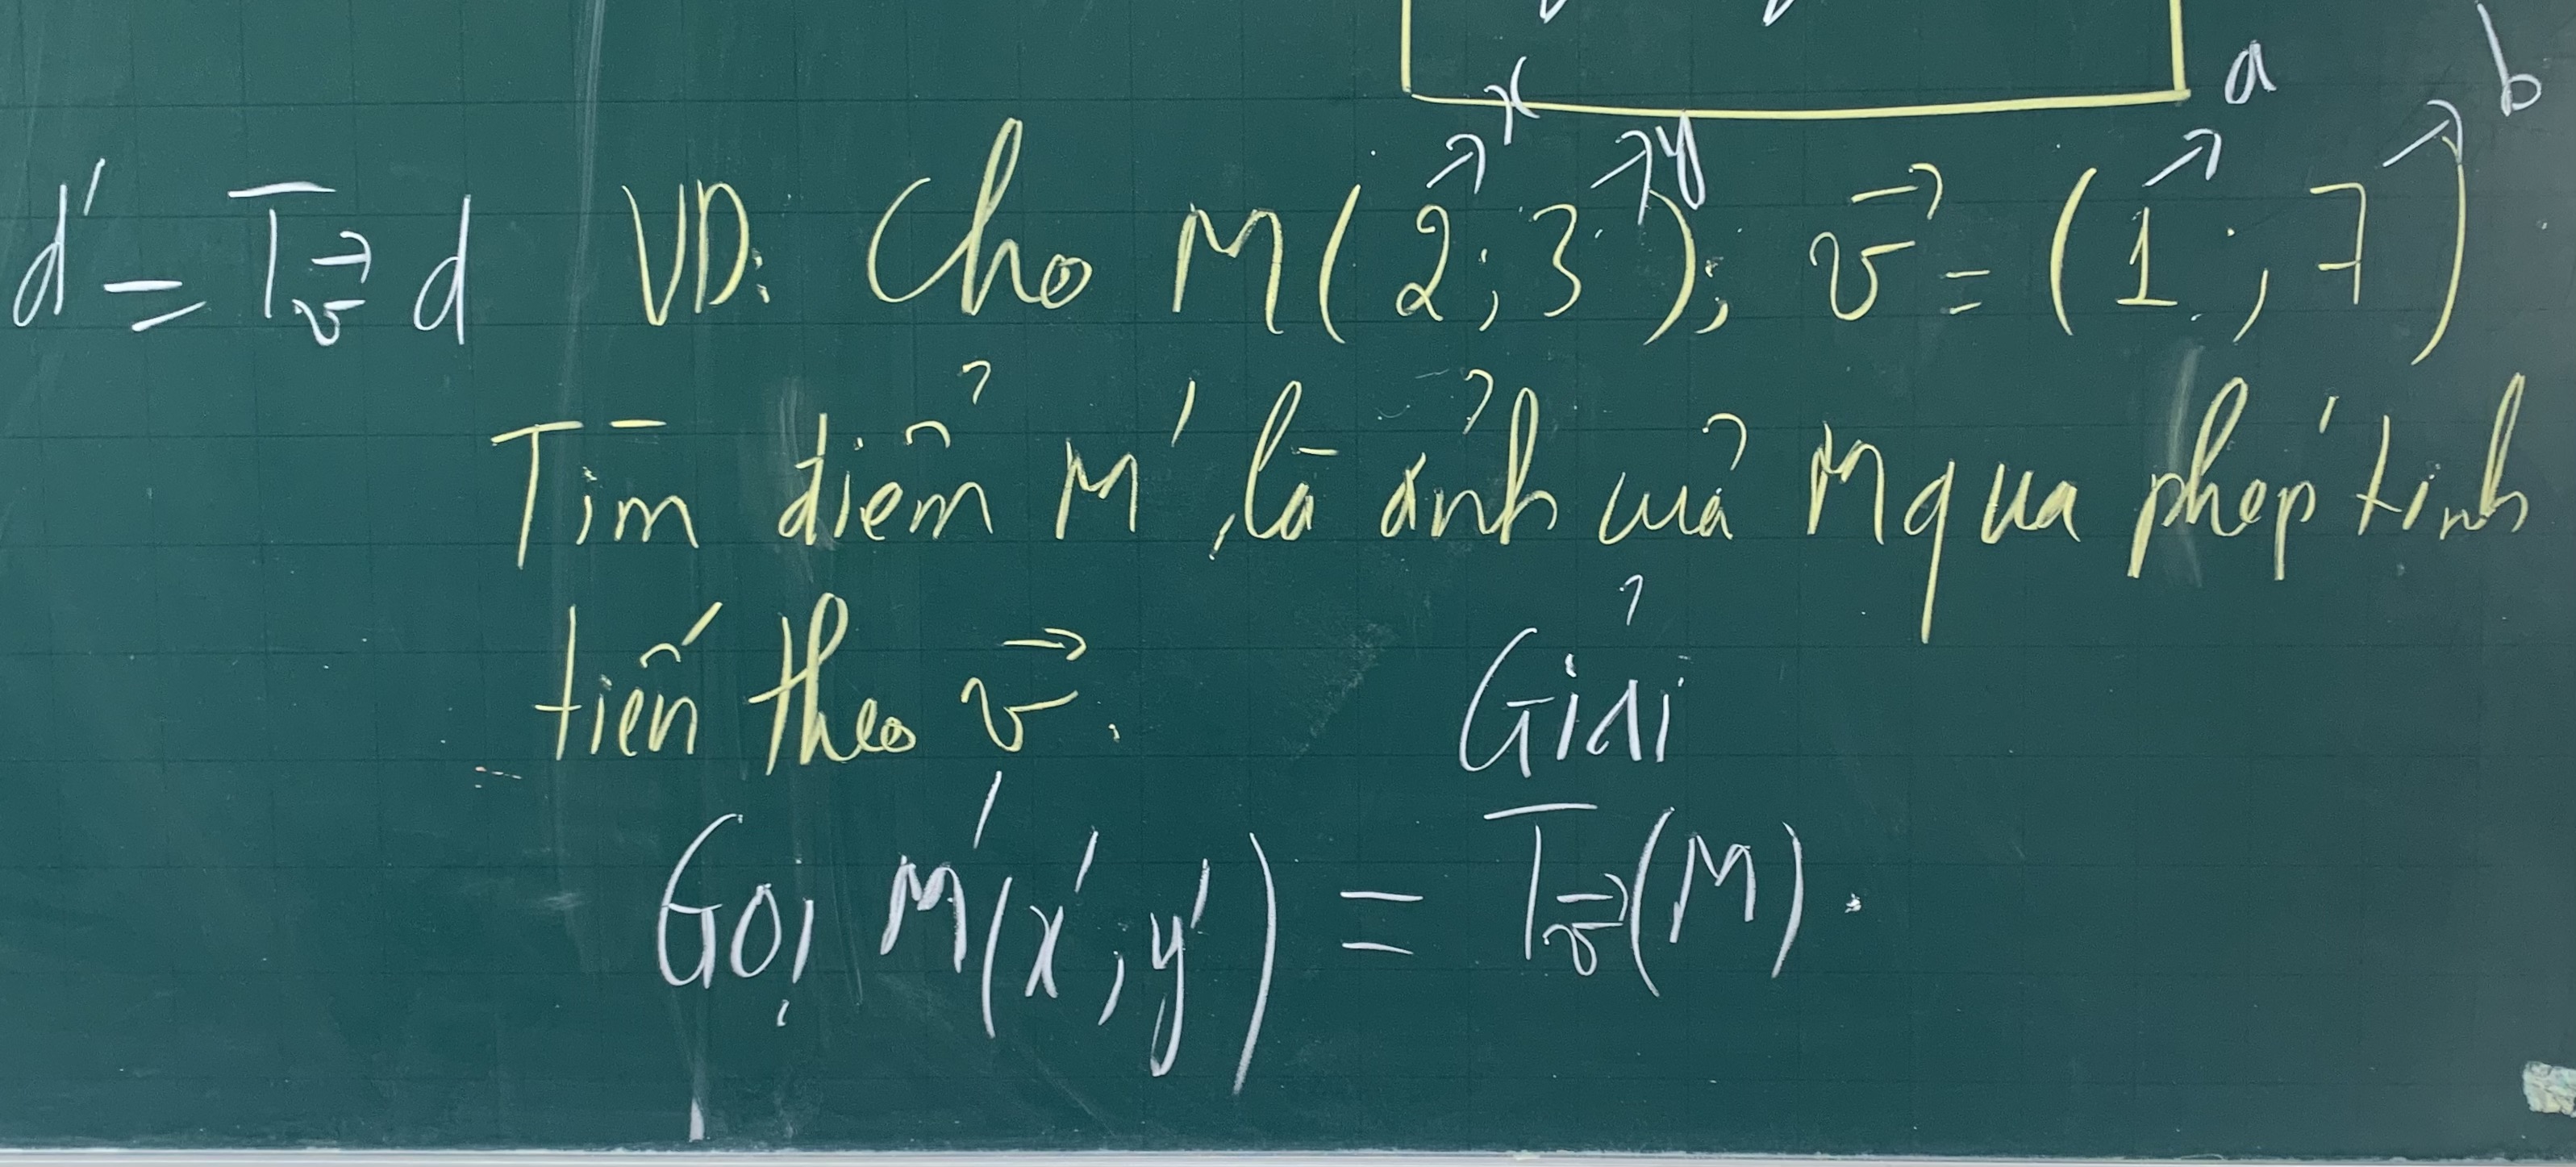 x y a b
d' = T_v⃗ d VD: Cho M(2;3); v⃗ = (1;7)
Tìm điểm M', là ảnh của M qua phép tịnh
tiến theo v⃗.
Giải
Gọi M'(x';y') = T_v⃗(M).